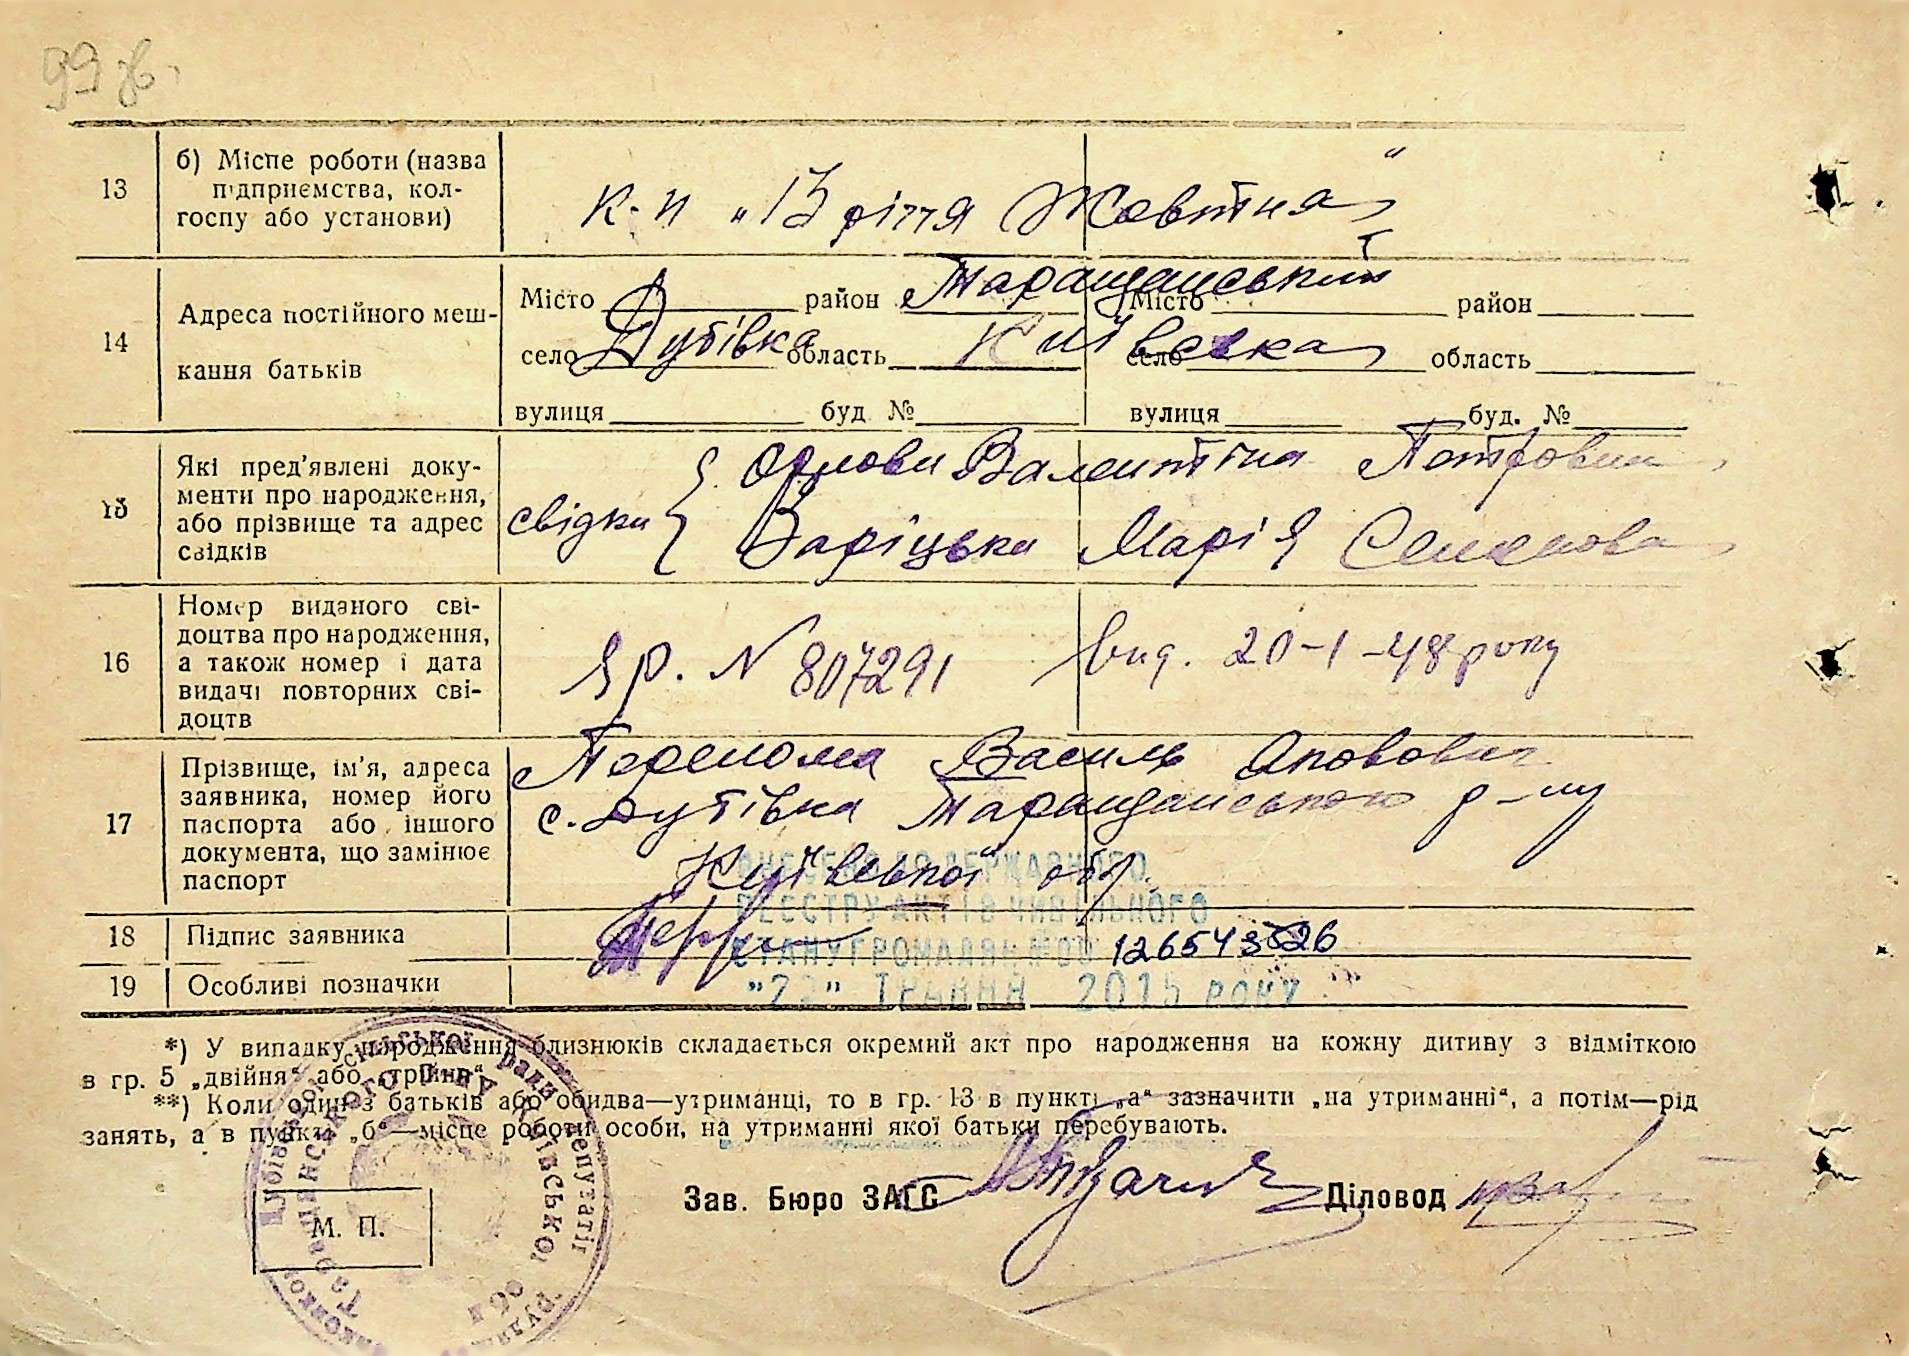 99 зв.
13
б) Місце роботи (назва
підприємства, кол-
госпу або установи)
к-п „13 річчя Жовтня"
14
Адреса постійного меш-
кання батьків
Місто район Таращанський Місто район
село Дубівка область Київська село область
вулиця буд № вулиця буд. №
15
Які пред'явлені доку-
менти про народження,
або прізвище та адрес
свідків
свідки
Валентіна Петровна
Заріцька Марія
16
Номер виданого сві-
доцтва про народження,
а також номер і дата
видачі повторних сві-
доцтв
ЯР. N 807291 вид. 20-1-48 року
17
Прізвище, ім'я, адреса
заявника, номер його
паспорта або іншого
документа, що замінює
паспорт
Василь
с. Дубівка Таращанського р-ну
Київської обл.
ВНЕСЕНО ДО ДЕРЖАВНОГО
РЕЄСТРУ АКТІВ ЦИВІЛЬНОГО
18
Підпис заявника
СТАНУ ГРОМАДЯН
19
Особливі позначки
ТРАВНЯ 2015 РОКУ
*) У випадку народження близнюків складається окремий акт про народження на кожну дитину з відміткою
в гр. 5 „двійня“ або „трійня“
**) Коли один з батьків або обидва—утриманці, то в гр. 13 в пункті „а“ зазначити „на утриманні“, а потім—рід
занять, а в пункті „б“—місце роботи особи, на утриманні якої батьки перебувають.
Зав. Бюро ЗАГС Діловод
М. П.